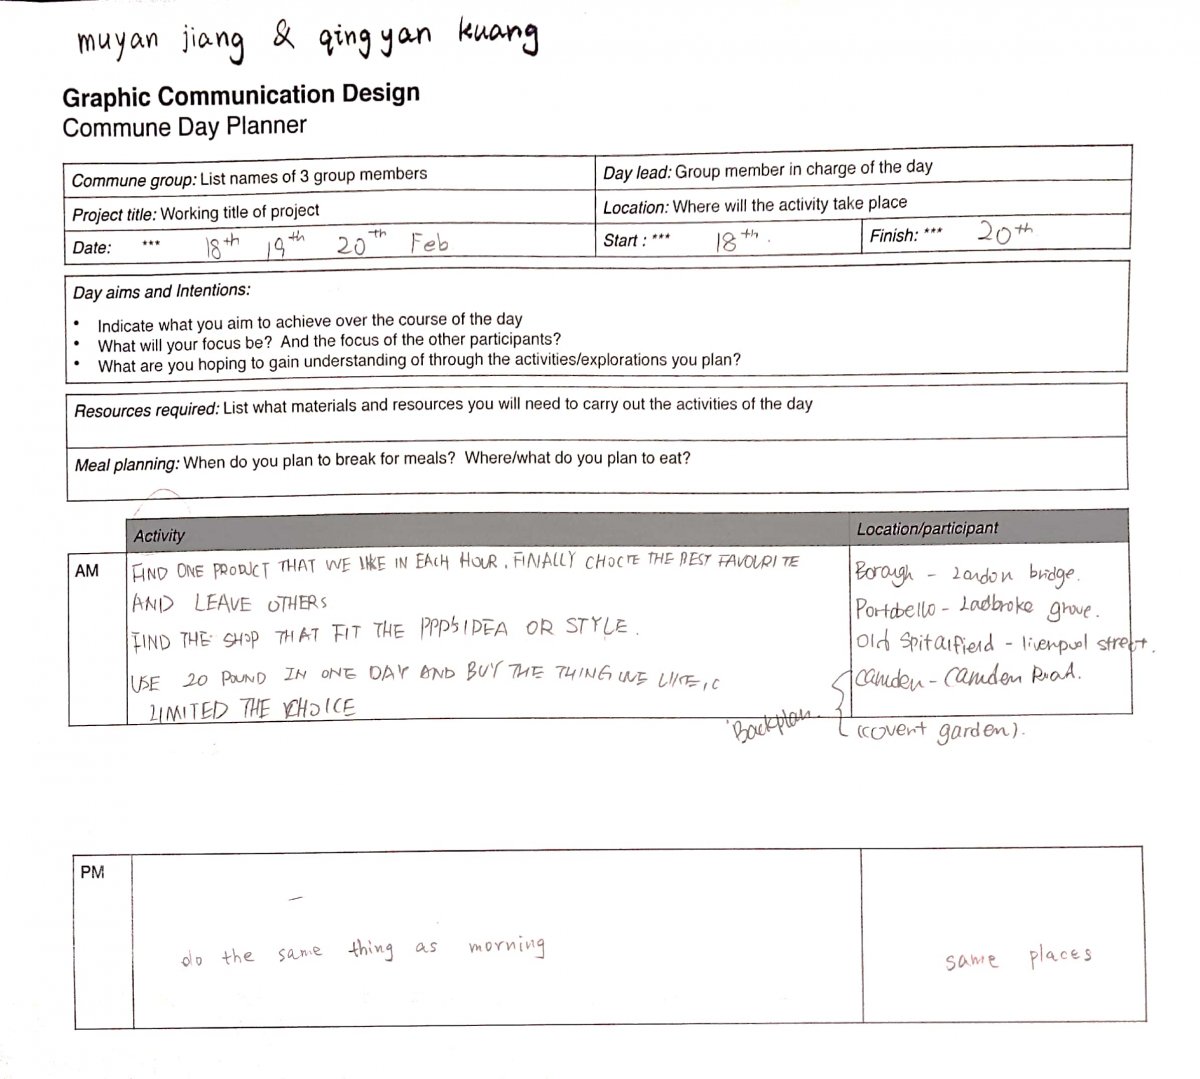 muyan jiang & qing yan kuang
Graphic Communication Design
Commune Day Planner
Commune group: List names of 3 group members
Day lead: Group member in charge of the day
Project title: Working title of project
Location: Where will the activity take place
Date: *** 18th 19th 20th Feb
Start : *** 18th .
Finish: *** 20th
Day aims and Intentions:
• Indicate what you aim to achieve over the course of the day
• What will your focus be? And the focus of the other participants?
• What are you hoping to gain understanding of through the activities/explorations you plan?
Resources required: List what materials and resources you will need to carry out the activities of the day
Meal planning: When do you plan to break for meals? Where/what do you plan to eat?
Activity
Location/participant
AM
FIND ONE PRODUCT THAT WE LIKE IN EACH HOUR, FINALLY CHOCTE THE BEST FAVOURITE
AND LEAVE OTHERS
FIND THE SHOP THAT FIT THE IDEA OR STYLE.
USE 20 POUND IN ONE DAY AND BUY THE THING WE LIKE,
LIMITED THE CHOICE
Borough - London bridge.
Portobello - Ladbroke grove.
Old Spitalfield - liverpool street.
Camden - Camden Road.
Backplan.
(covent garden).
PM
do the same thing as morning
same places